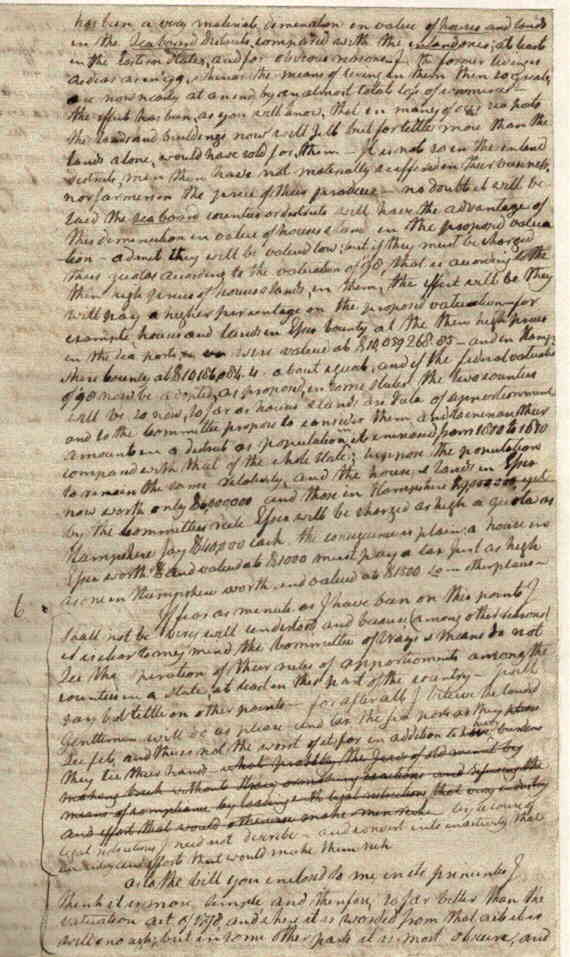 has been a very material diminution in value of houses and lands
in the seaboard districts compared with the inland ones; at least
in the Eastern States, and for obvious reasons—the former
the means of living in them then so great,
are now nearly at an end by an almost total loss of commerce—
the effect has been, as you well know, that in many of our sea ports
the lands and buildings now will sell but for little more than the
lands alone, would have sold for, then— it is not so in the inland
districts, men there have not materially suffered in their business,
nor farmers in the price of their produce— no doubt it will be
said the seaboard counties or districts will have the advantage of
this diminution in value of houses & land in the proposed valua
tion— admit they will be valued low; but if they must be charged
their quotas according to the valuation of 98, that is according to the
then high prices of houses & lands, in them, the effect will be they
will pay a higher percentage on the proposed valuation—for
example, houses and lands in Essex County at the then high prices
in the sea ports, were valued at $10,039,268.05—and in Hamp
shire County at $10,186,084. about equal, and if the federal valuation
of 98 now be adopted, as proposed, in some states, the two counties
will be so now, so far as houses & lands are data of apportionment
and so the Committee propose to consider them and
amounts in a district as population, it increased from 1800 to 1810
compared with that of the whole state; suppose the population
to remain the same relatively, and the houses & lands in Essex
now worth only and those in Hampshire
by the committees rule Essex will be charged as high a quota as
Hampshire say $40,000 each the consequence is plain; a house in
Essex worth and valued at $1000 must pay a tax just as high
as one in Hampshire worth and valued at $1500 so in other places—
6 I fear as minute as I have been on this point I
shall not be every well understood and because (among other reasons)
it is clear to my mind, the Committee of Ways & Means do not
see the operation of their rules of apportionments among the
counties in a state, at least in this part of the country— I will
say but little on other points— for after all I believe the landed
Gentlemen will do as please and tax the few
and this is not the worst of it, for in addition to heavy burdens
they tie their hands—
making such without their own and refusing the
means of compliance by loading with legal restrictions that very industry
and effort that would otherwise make men rich by scores of
legal restrictions I need not describe— and convert into inactivity that
industry and effort that would make them rich
as to the bill you enclosed to me in its principles I
think it is more simple and therefore, so far better than the
valuation act of 1798, and where it is worded from that act it is
well enough; but in some other parts it is most obscure, and